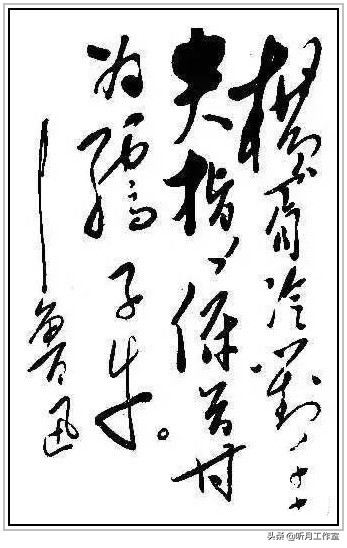 橫眉冷對千
夫指，俯首甘
为孺子牛。
——魯迅
头条 @听月工作室